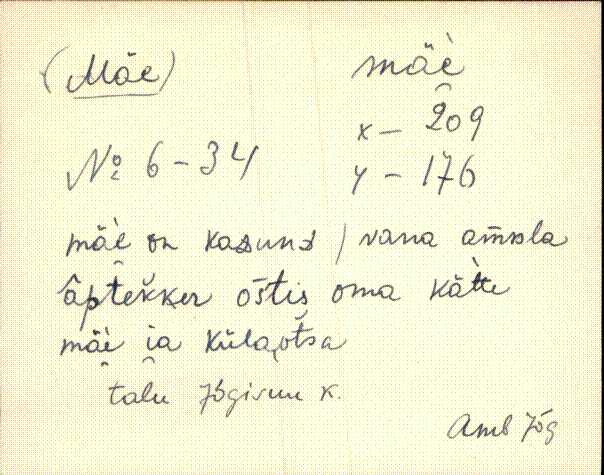 (Mäe) mäè
x – 209
№ 6-34 y – 176
mäè on kasuns / vana amsla
äptekker ostis oma kätte
mäè ia külaotsa
talu Jõgisuu k.
Amb Jõg